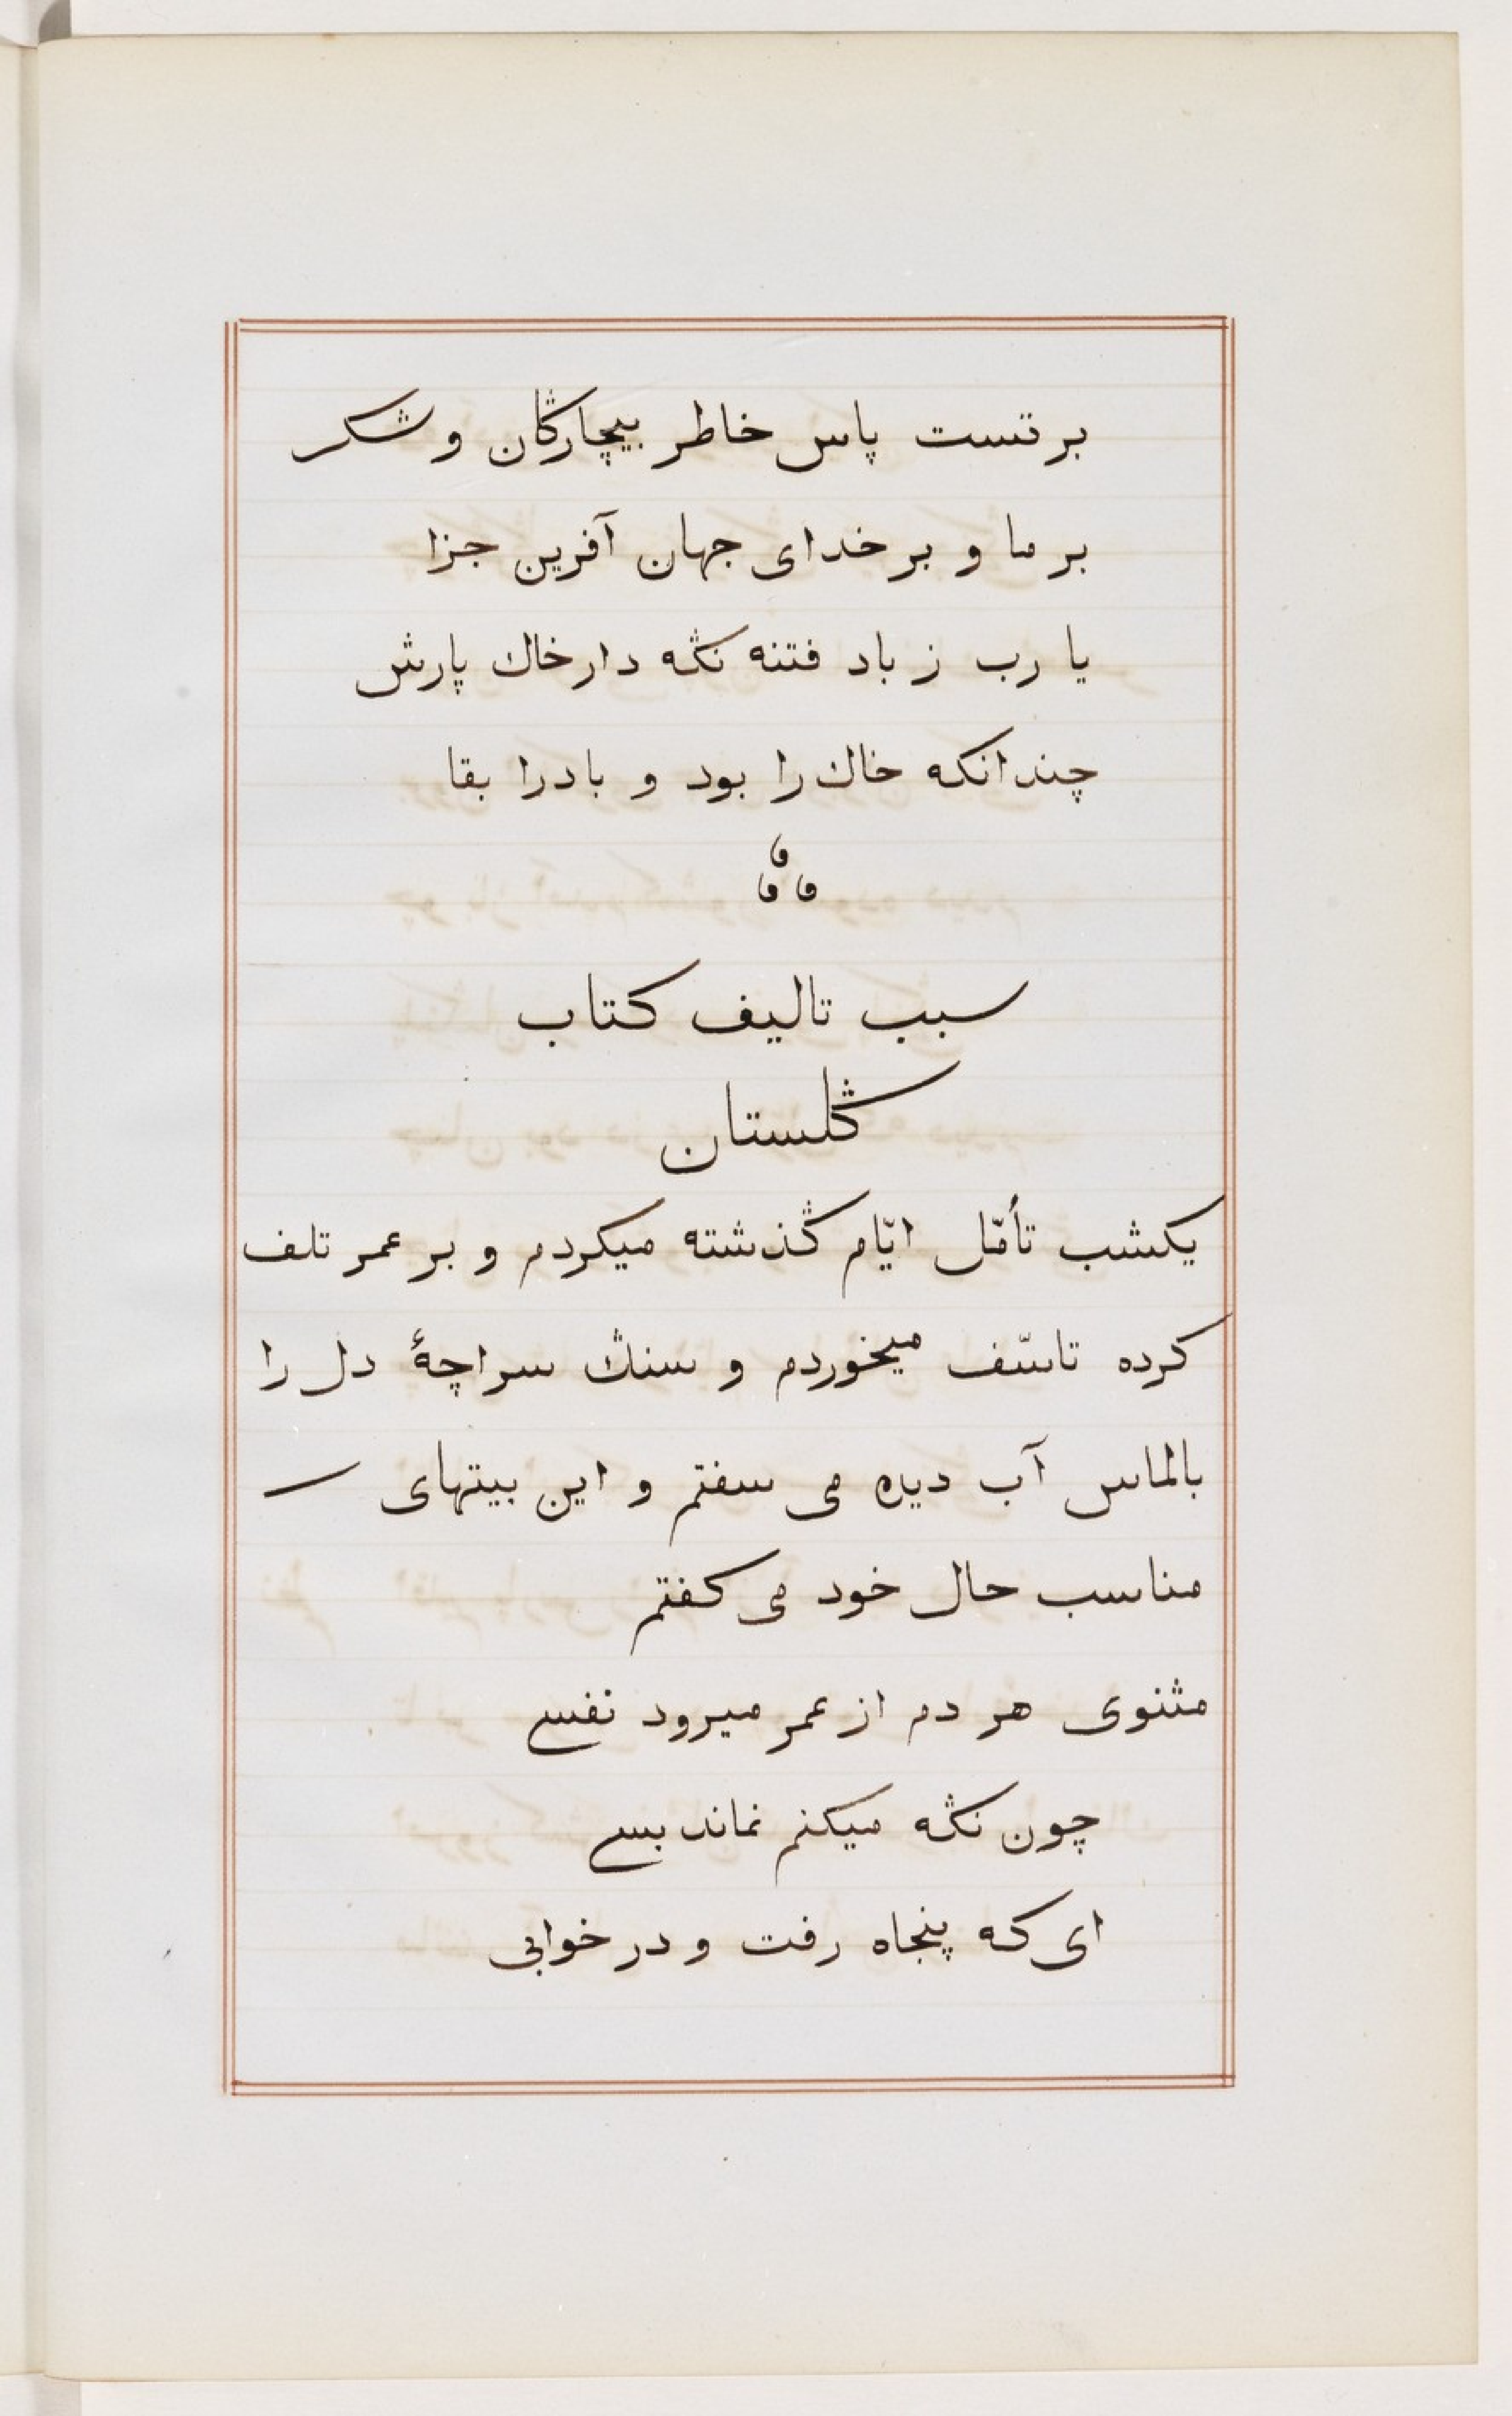 بر تست پاس خاطر بیچارگان و شکر
بر ما و بر خدای جهان آفرین جزا
یا رب ز باد فتنه نگه دار خاك پارش
چندانکه خاك را بود و باد را بقا
سبب تالیف کتاب
گلستان
یکشب تأمّل ایّام گذشته میکردم و بر عمر تلف
کرده تاسّف میخوردم و سنگ سراچهٔ دل را
بالماس آب دیده می سفتم و این بیتهای
مناسب حال خود می کفتم
مثنوی هر دم از عمر میرود نفسے
چون نگه میکنم نماند بسے
ای که پنجاه رفت و در خوابی